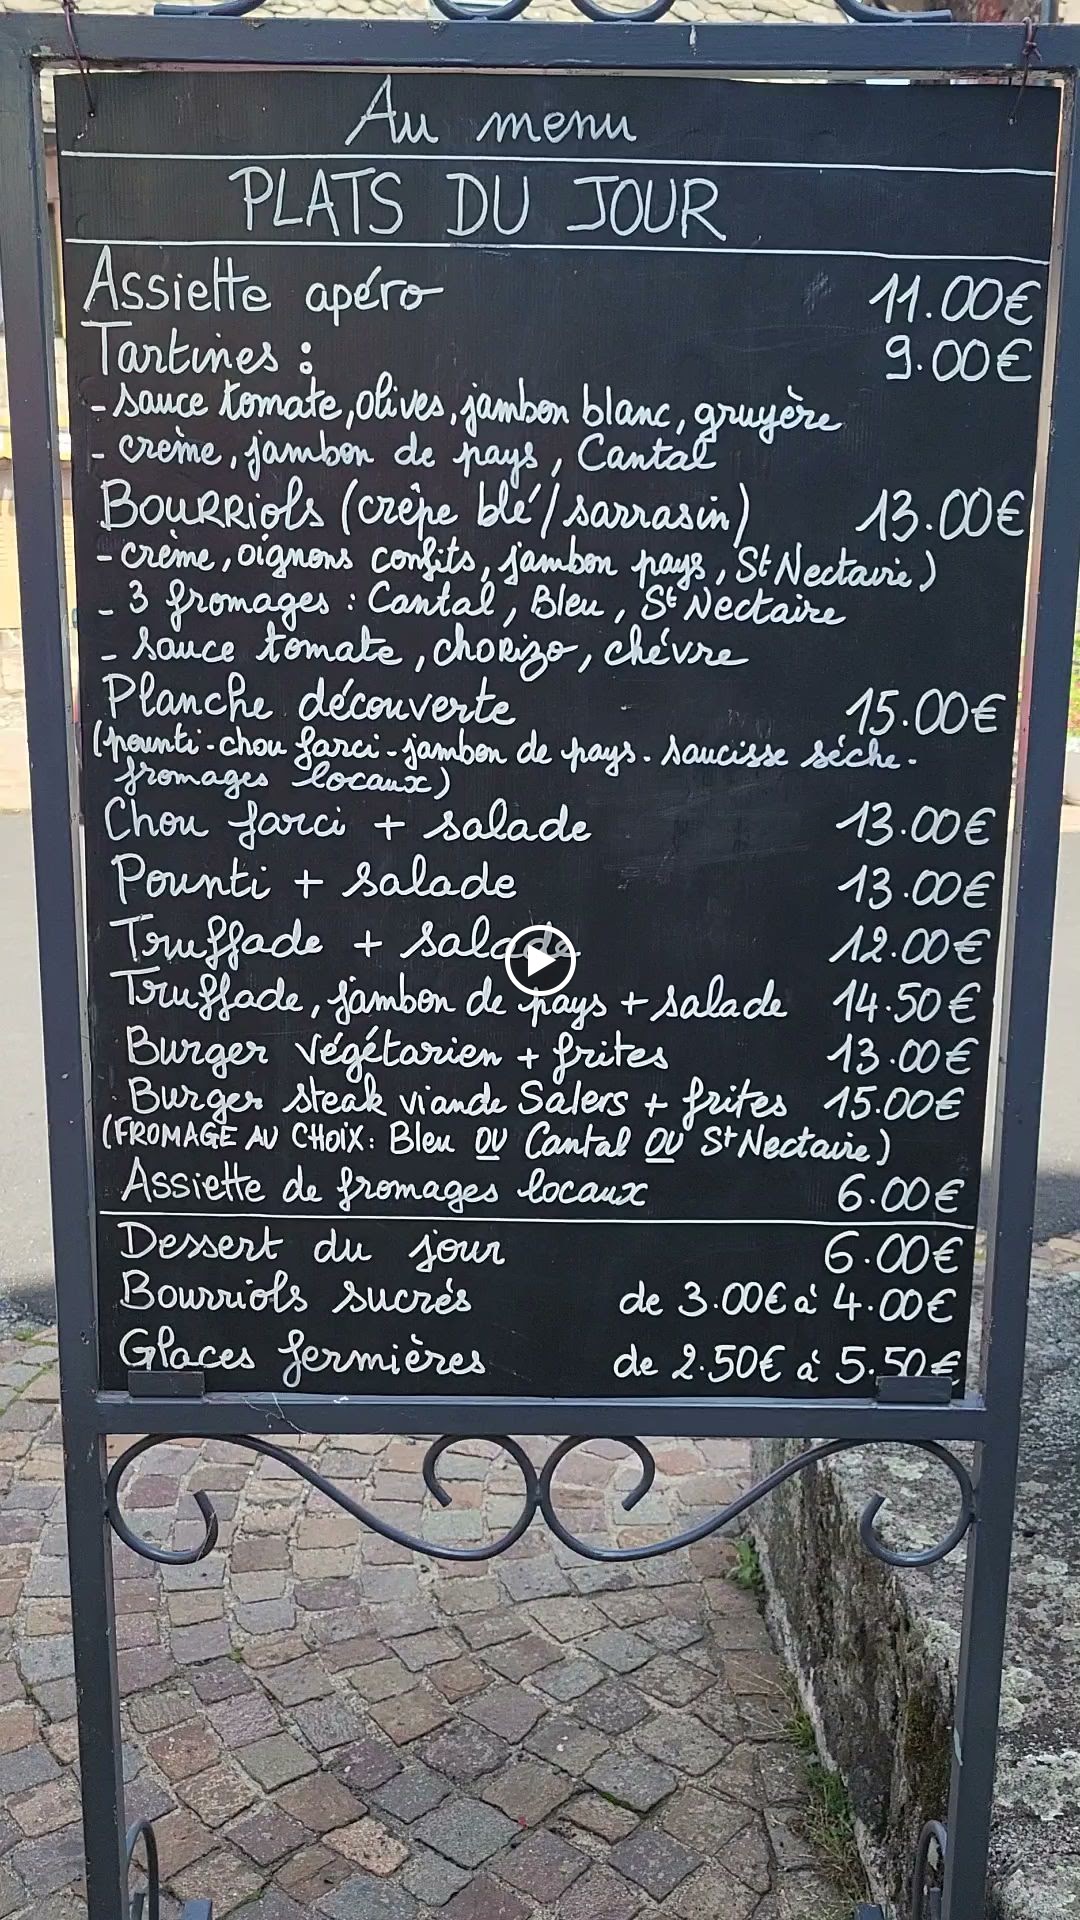 Au menu
PLATS DU JOUR
Assiette apéro 11.00€
Tartines : 9.00€
- sauce tomate, olives, jambon blanc, gruyère
- crème, jambon de pays, Cantal
BOURRiols (crêpe blé/sarrasin) 13.00€
- crème, oignons confits, jambon pays, St Nectaire)
- 3 fromages : Cantal, Bleu, St Nectaire
- sauce tomate, choRizo, chévre
Planche découverte 15.00€
(pounti - chou farci - jambon de pays - saucisse séche -
fromages locaux)
Chou farci + salade 13.00€
Pounti + salade 13.00€
Truffade + salade 12.00€
Truffade, jambon de pays + salade 14.50€
Burger végétarien + frites 13.00€
Burger steak viande Salers + frites 15.00€
(FROMAGE AU CHOiX : Bleu OU Cantal OU St Nectaire)
Assiette de fromages locaux 6.00€
Dessert du jour 6.00€
Bourriols sucrés de 3.00€ à 4.00€
Glaces fermières de 2.50€ à 5.50€